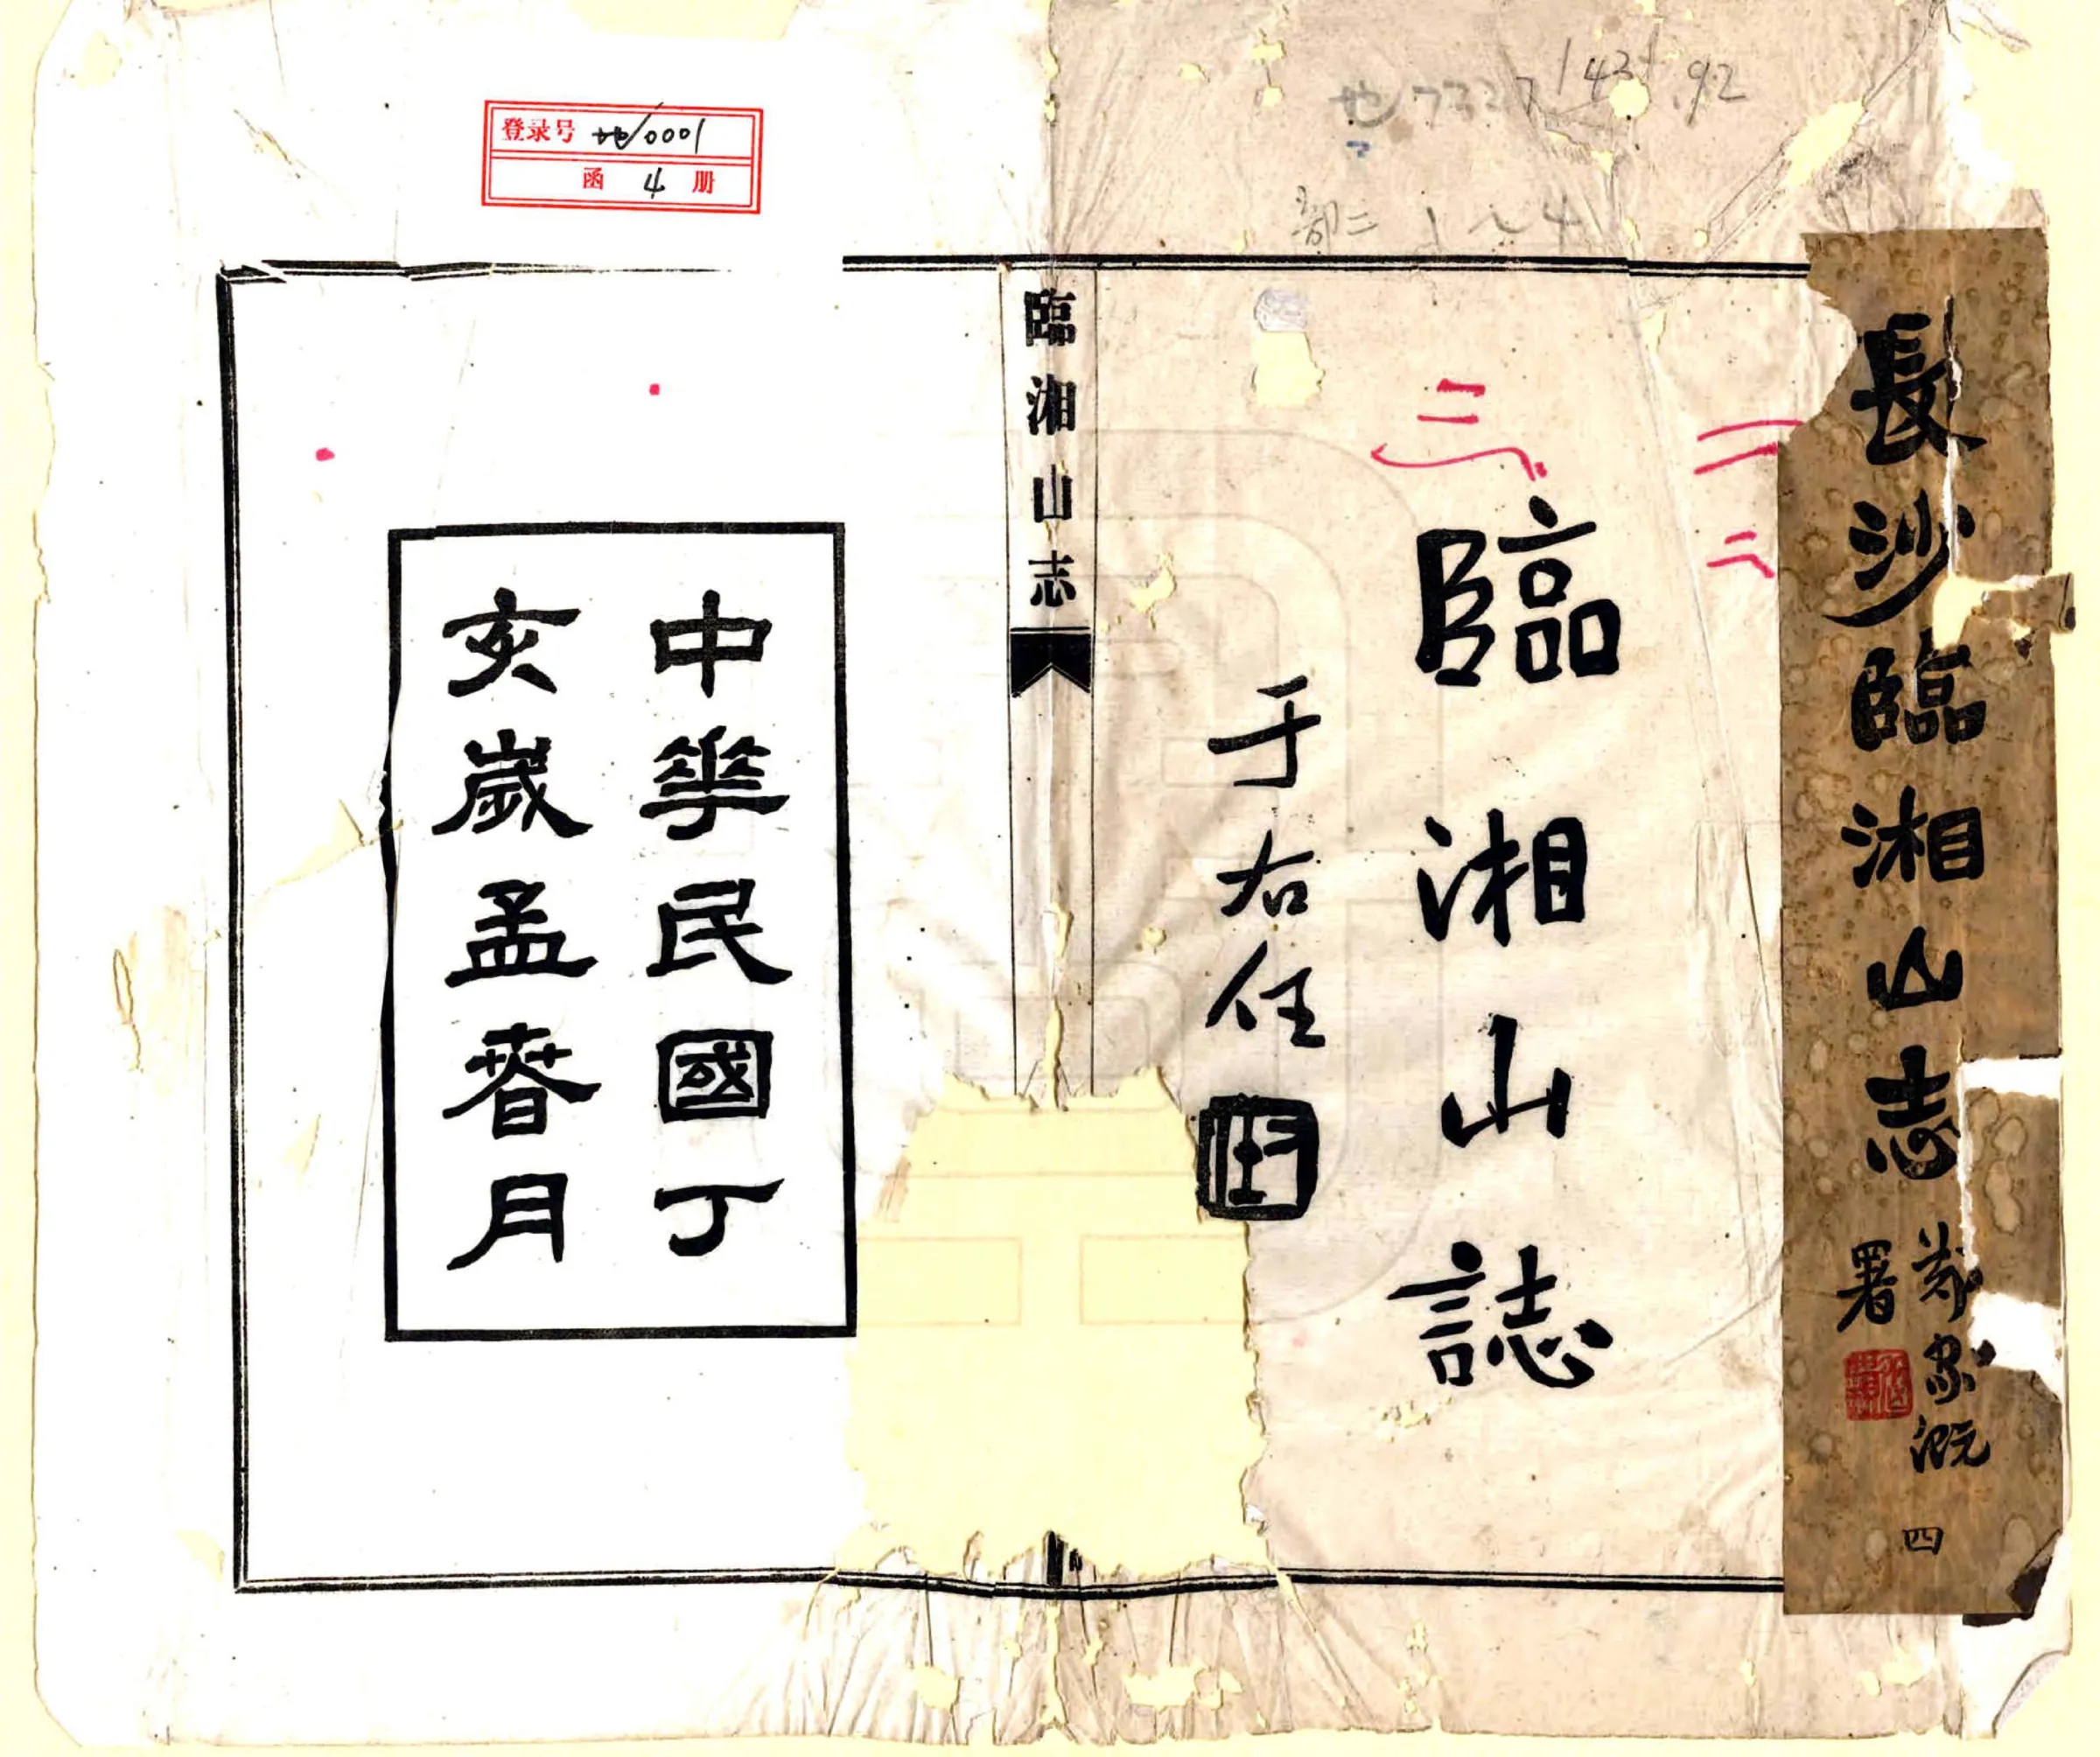 長沙臨湘山志
家溉
署
四
臨湘山誌
于右任
臨湘山志
中華民國丁
亥歲孟春月
登录号 地/0001
函 4 册
地7337
143
.92
部二 1~4
二
三